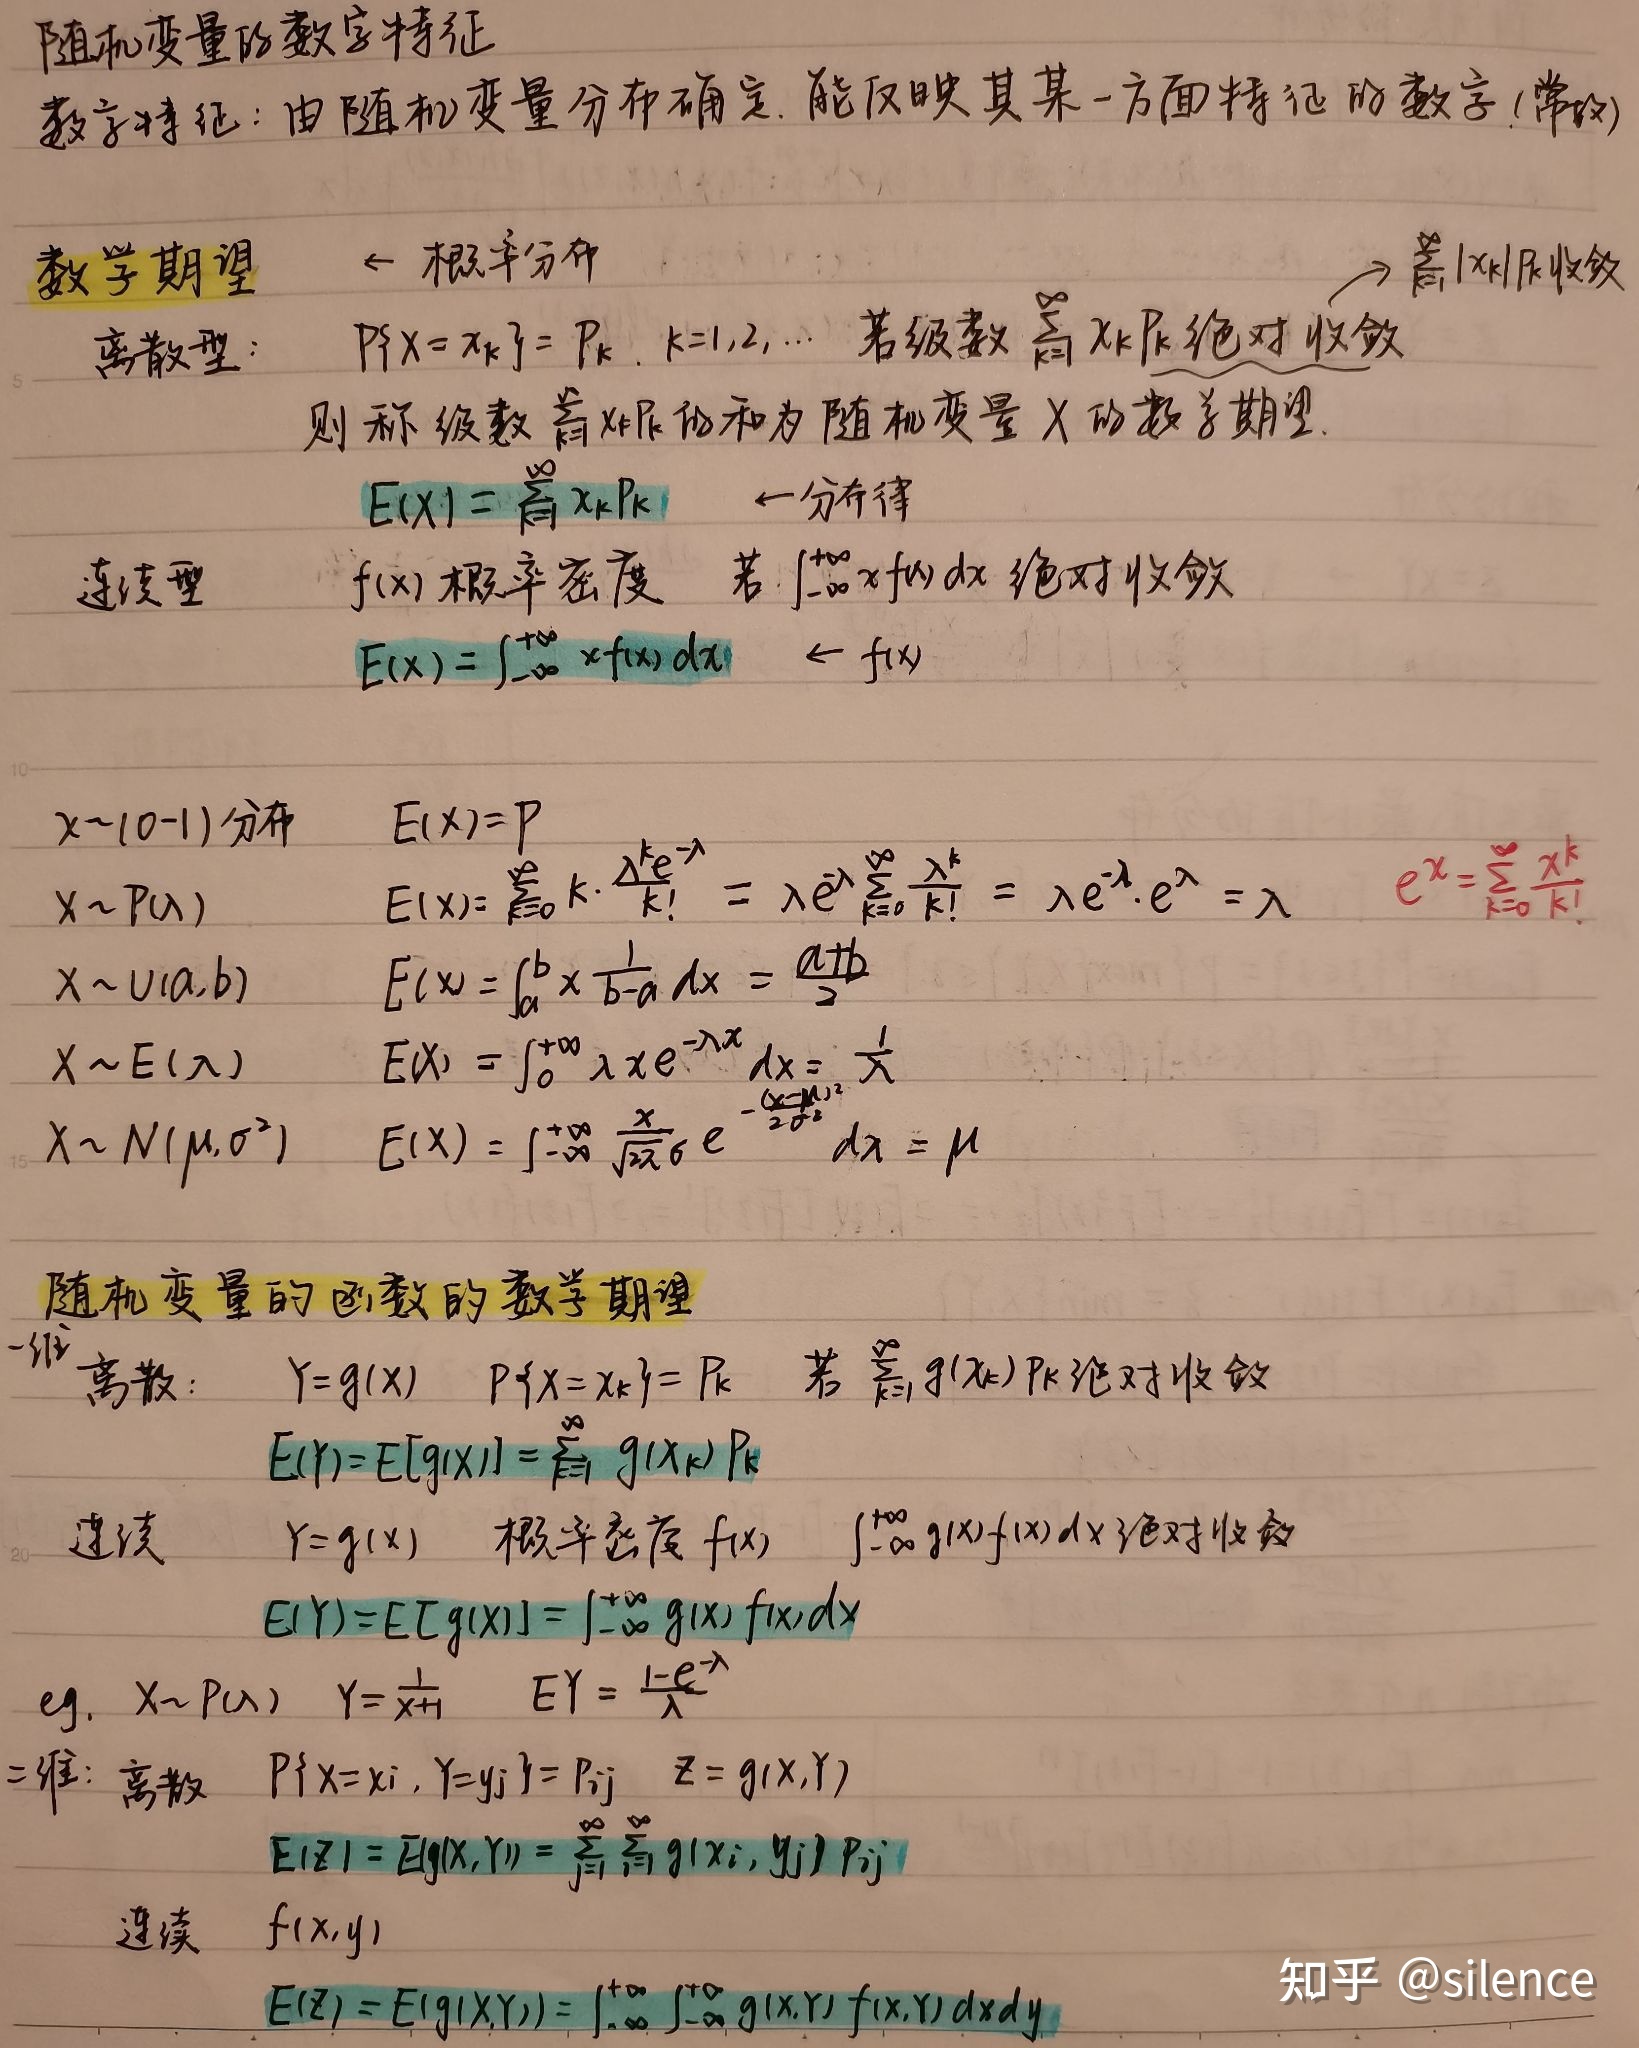 随机变量的数字特征
数字特征：由随机变量分布确定.能反映其某一方面特征的数字.(常数)
数学期望 ← 概率分布
→ ∑_{k=1}^{∞}|x_k|P_k收敛
离散型： P{X=x_k}=P_k . k=1,2,… 若级数 ∑_{k=1}^{∞} x_kP_k 绝对收敛
则称级数 ∑_{k=1}^{∞} x_kP_k 的和为随机变量X的数学期望.
E(X)=∑_{k=1}^{∞} x_kP_k ←分布律
连续型 f(x)概率密度 若∫_{-∞}^{+∞} x f(x) dx 绝对收敛
E(X)=∫_{-∞}^{+∞} x f(x) dx ← f(x)
X~(0-1)分布 E(X)=P
X~P(λ) E(X)=∑_{k=0}^{∞} k·\frac{λ^k e^{-λ}}{k!} = λe^{-λ}∑_{k=0}^{∞}\frac{λ^k}{k!} = λe^{-λ}·e^λ = λ e^x=∑_{k=0}^{∞}\frac{x^k}{k!}
X~U(a,b) E(X)=∫_a^b x \frac{1}{b-a} dx = \frac{a+b}{2}
X~E(λ) E(X)=∫_0^{+∞} λxe^{-λx} dx=\frac{1}{λ}
X~N(μ,σ²) E(X)=∫_{-∞}^{+∞} \frac{x}{\sqrt{2π}σ} e^{-\frac{(x-μ)^2}{2σ^2}} dx = μ
随机变量的函数的数学期望
一维
离散： Y=g(X) P{X=x_k}=P_k 若 ∑_{k=1}^{∞} g(x_k)P_k绝对收敛
E(Y)=E[g(X)]=∑_{k=1}^{∞} g(x_k)P_k
连续 Y=g(x) 概率密度 f(x) ∫_{-∞}^{+∞} g(x)f(x)dx绝对收敛
E(Y)=E[g(X)]=∫_{-∞}^{+∞} g(x)f(x)dx
eg. X~P(λ) Y=\frac{1}{x+1} EY=\frac{1-e^{-λ}}{λ}
二维： 离散 P{X=xi,Y=yj}=Pij Z=g(X,Y)
E(Z)=E(g(X,Y))=∑_{j=1}^{∞}∑_{i=1}^{∞} g(xi,yj)Pij
连续 f(x,y)
E(Z)=E(g(X,Y))=∫_{-∞}^{+∞}∫_{-∞}^{+∞} g(X,Y) f(X,Y)dxdy
知乎 @silence
5
10
15
20